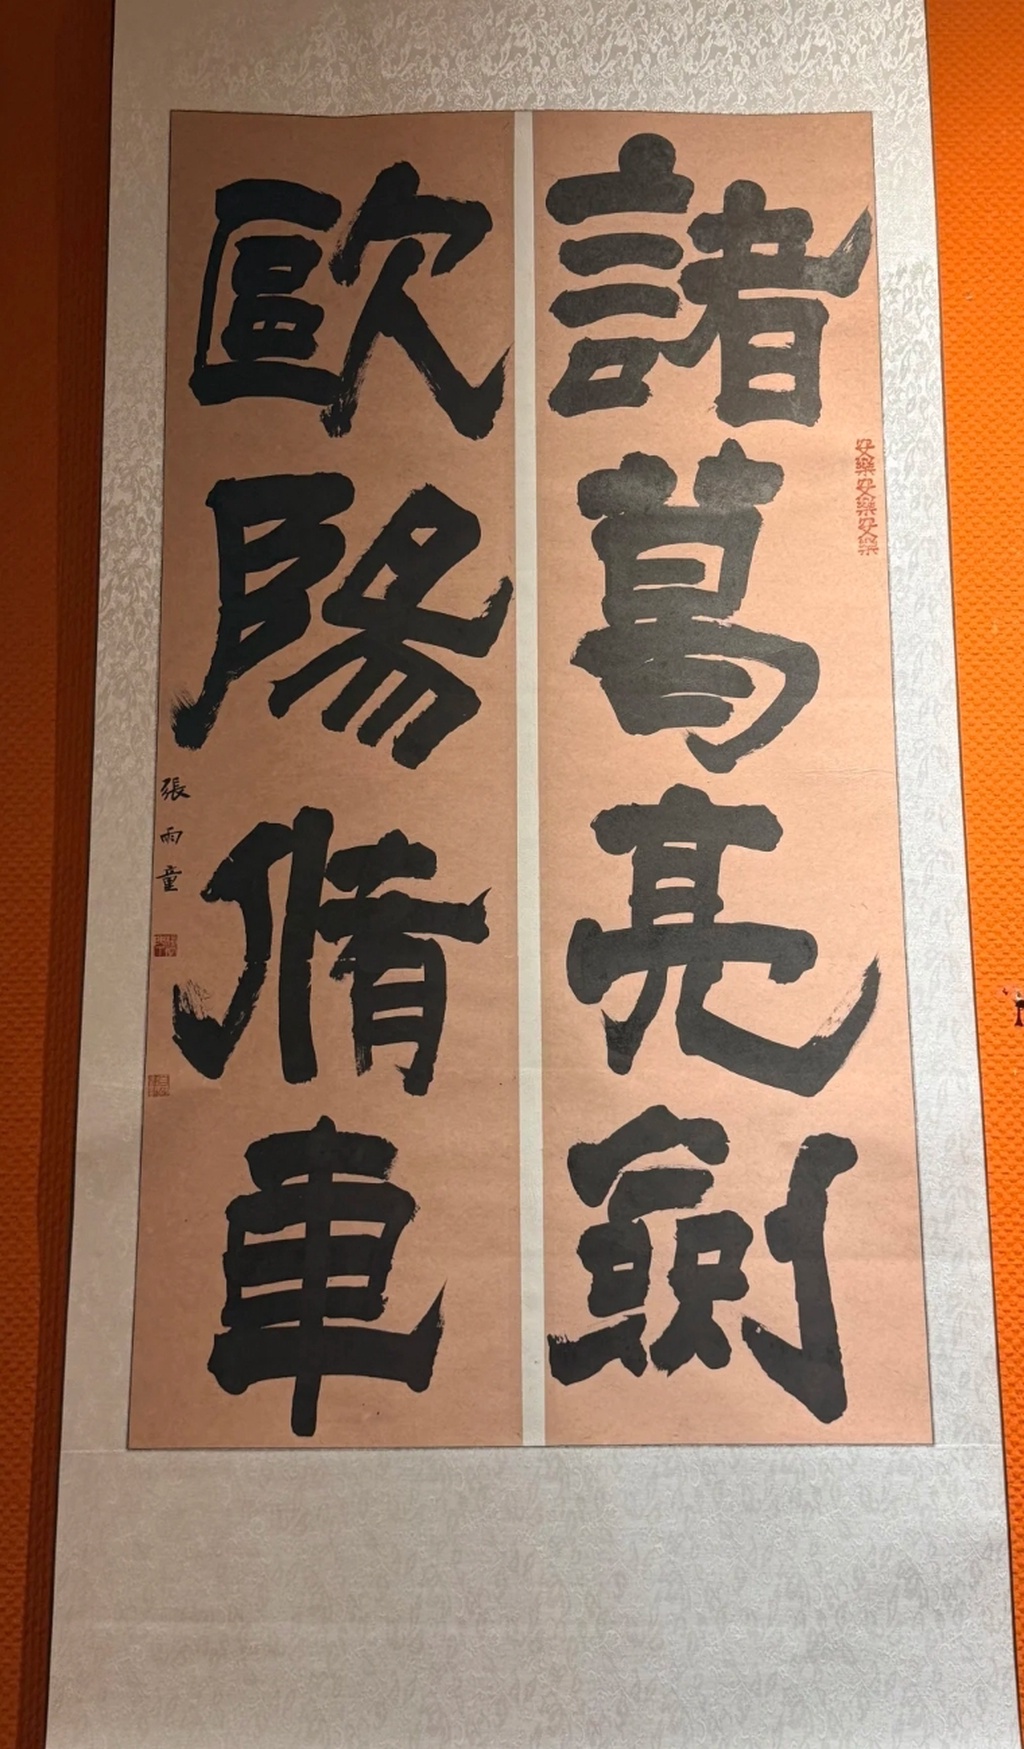 諸葛亮劍
安樂安樂安樂
歐陽脩車
張雨童